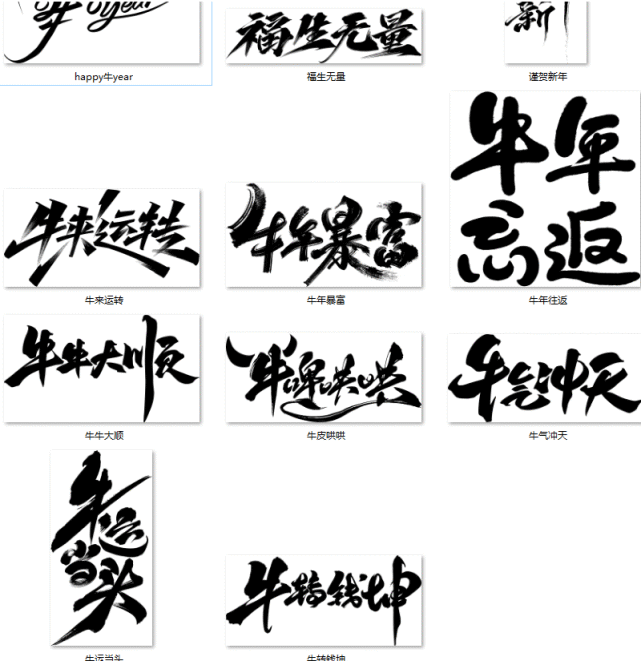 happy牛year
福生无量
福生无量
新
谨贺新年
牛来运转
牛年暴富
牛年
忘返
牛来运转
牛年暴富
牛年往返
牛牛大顺
牛啤哄哄
牛气冲天
牛牛大顺
牛皮哄哄
牛气冲天
牛运
当头
牛转钱坤
牛运当头
牛转钱坤